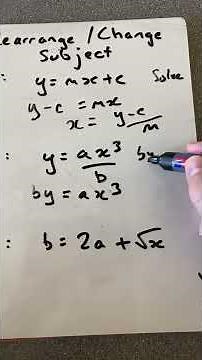 Rearrange / Change
Subject
: y = mx + c Solve
y - c = mx
x = y - c / m
: y = ax³ / b by
by = ax³
: b = 2a + √x